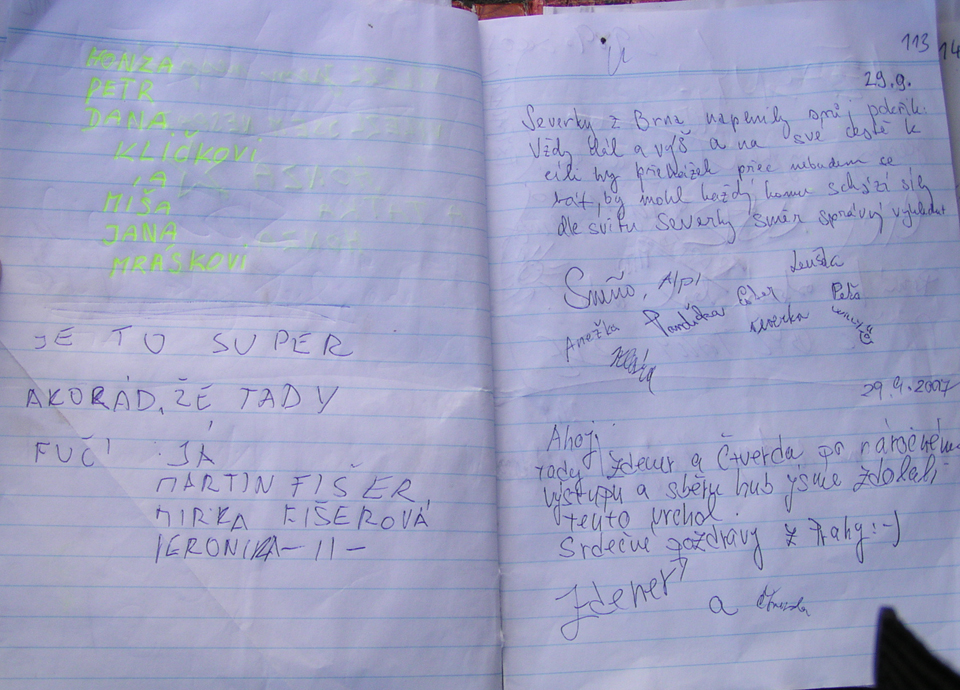 HONZA
PETR
DANA
KLIČKOVI
A
MÍŠA
JANA
MRÁSKOVI
JE TO SUPER
AKORÁD, ŽE TADY
FUČÍ JÁ
MARTIN FIŠER,
MIRKA FIŠEROVÁ
VERONIKA -11-
113
14
29.9.
Severky z Brna naplnily svůj pokřik:
Vždy dál a výš a na své cestě k
cíli my překážek přec nebudem se
bát, by mohl každý, komu schází síly
dle svitu Severky směr správný vyhledat
Lenka
Anežka Pardička
29.9.2007
Ahoj,
tady Zdener a Čtverda po náročném
výstupu a sběru hub jsme zdolali
tento vrchol.
Srdečné pozdravy z Prahy :-)
Zdener
a Čtverda